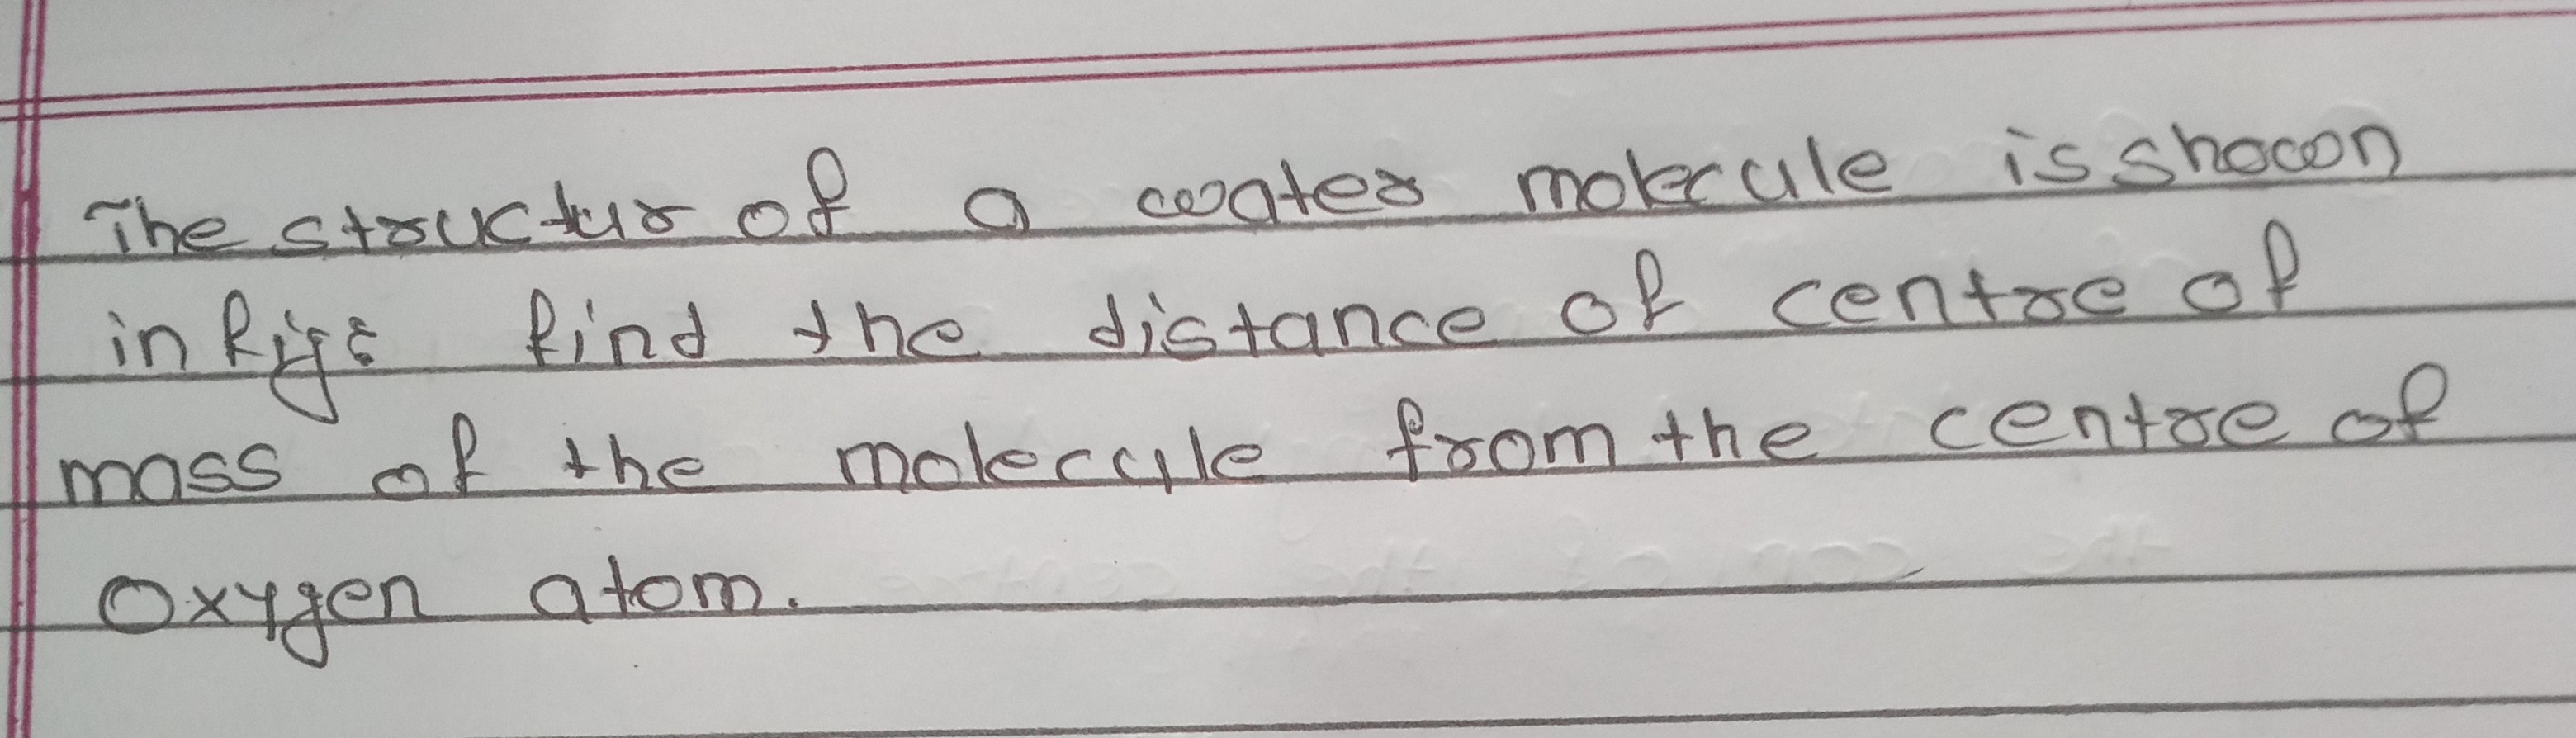 The structur of a water molecule is shown
in fig: find the distance of centre of
mass of the molecule from the centre of
oxygen atom.